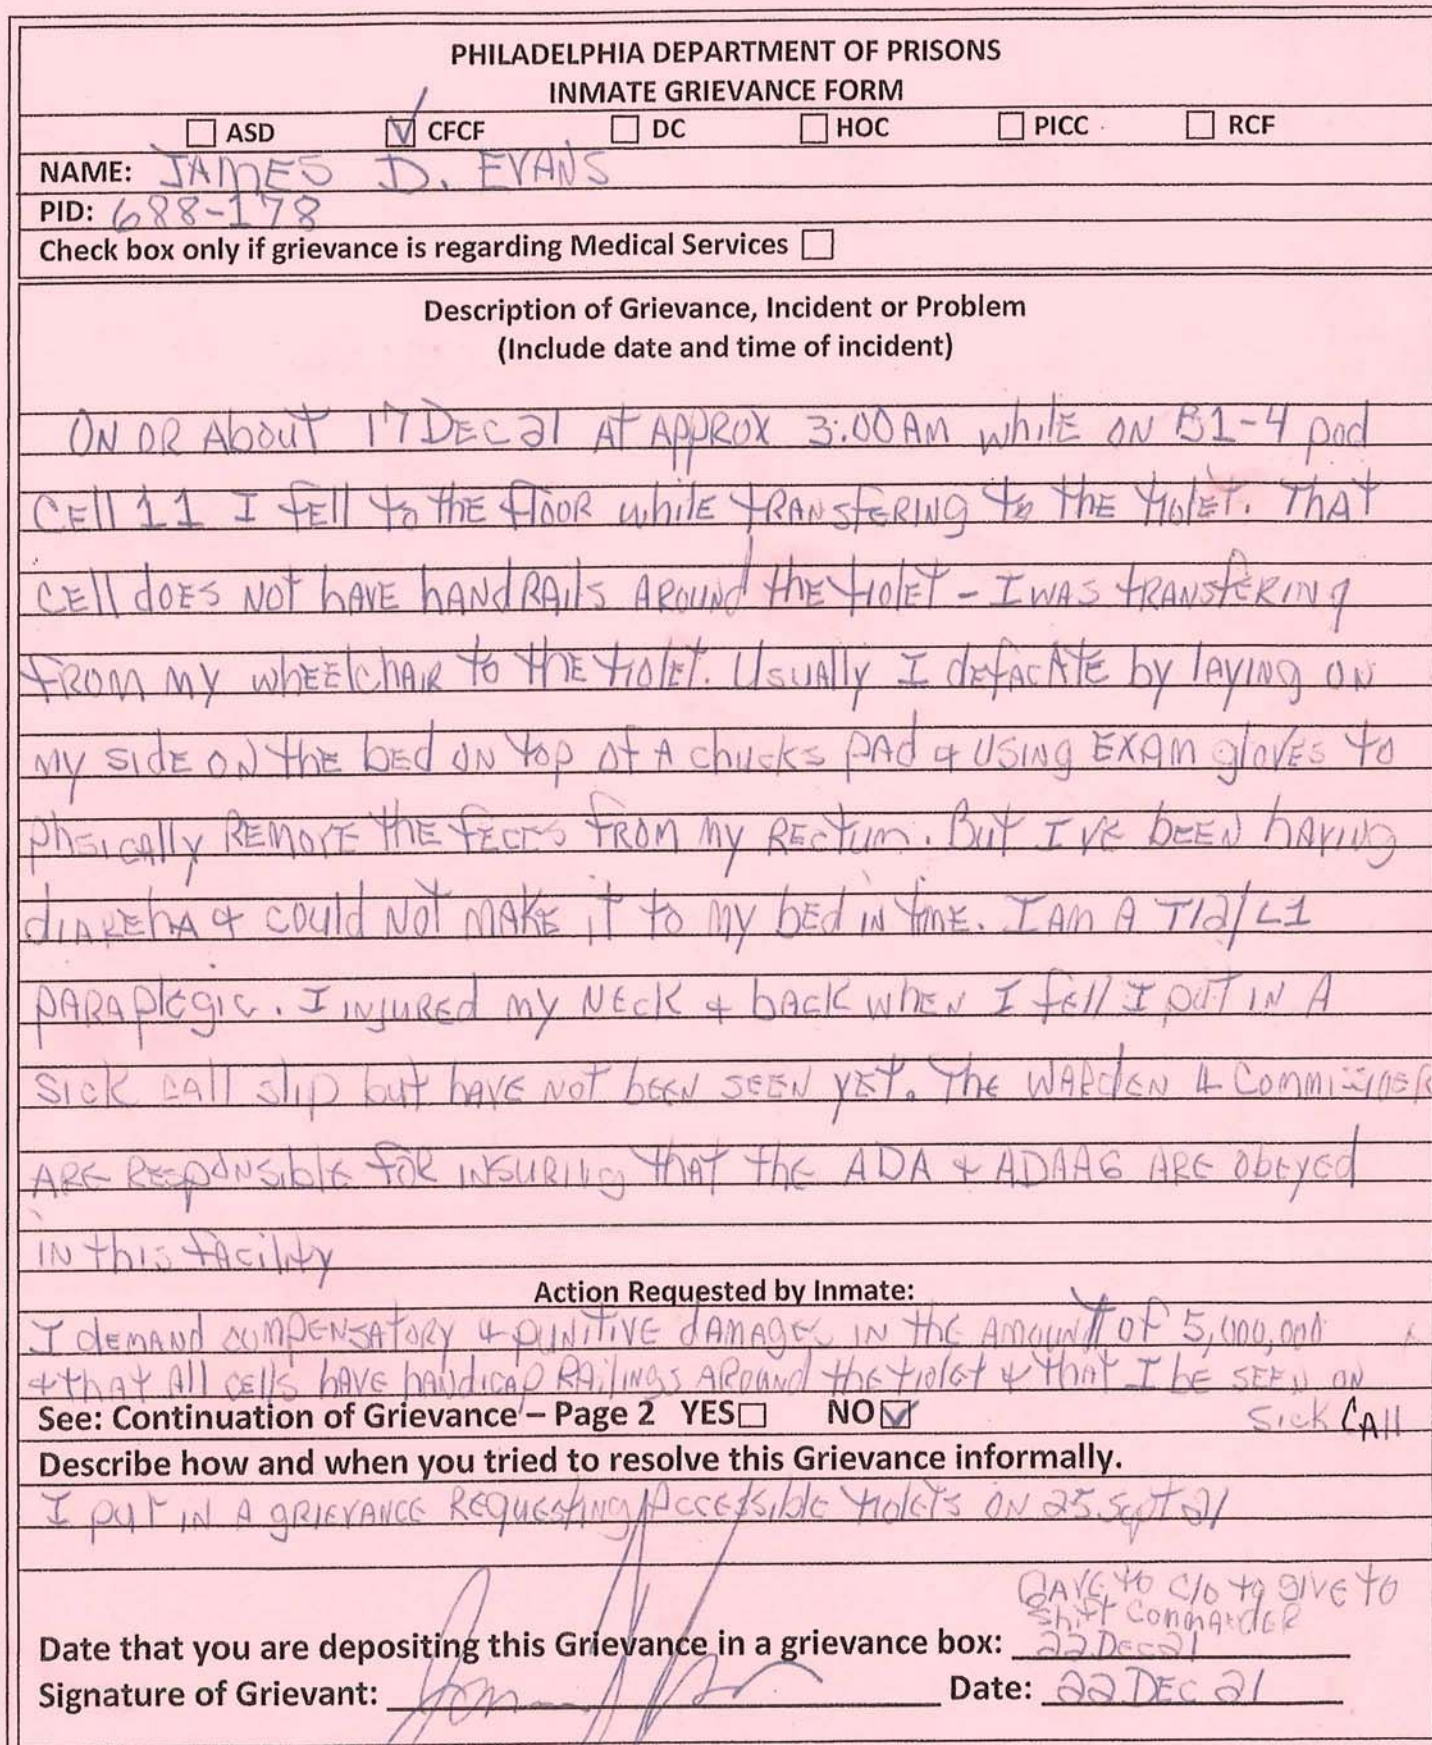 PHILADELPHIA DEPARTMENT OF PRISONS
INMATE GRIEVANCE FORM
ASD CFCF DC HOC PICC RCF
NAME: JAMES D. EVANS
PID: 688-178
Check box only if grievance is regarding Medical Services
Description of Grievance, Incident or Problem
(Include date and time of incident)
ON OR About 17 DEC 21 At APPROX 3:00 AM while ON B1-4 pod
CEll 11 I fEll to the flOOR while tRANSfERING to the tiolet. ThAt
CEll dOES NOt hAVE hANdRAils AROUNd thE tiolEt - I WAS tRANSfERING
fROM MY whEElchAiR to thE tiolEt. USUAlly I dEfACAtE by lAYING ON
MY SidE ON thE bEd ON top Of A chucks pAd & USING EXAM glOVES to
phsicAlly REMOVE thE fECES fROM MY RECtum. But I'VE bEEN hAVING
diAREhA & COUld NOt MAKE it to MY bEd iN timE. I AM A T12/L1
PARAplEgic. I iNjURED MY NECK & bACK whEN I fEll I put IN A
Sick CAll slip but hAVE NOt bEEN SEEN YEt. ThE WARdEN & COMMiSSiONER
ARE RESpONSiblE fOR iNSURiNG thAt thE ADA & ADAAG ARE ObEYEd
iN this fAcility
Action Requested by Inmate:
I dEMANd COMPENSATORY & PUNiTIVE dAMAgES iN thE AMOUNt Of 5,000,000
& thAt All CElls hAVE hANdiCAP RAiliNgS AROUNd thE tiolEt & thAt I bE SEEN ON
See: Continuation of Grievance – Page 2 YES NO Sick CAll
Describe how and when you tried to resolve this Grievance informally.
I put iN A gRiEVANCE REQUEStiNg ACCESSiblE tiolEtS ON 25 SEpt 21
GAVE to C/O to giVE to
Shift COMMANdER
Date that you are depositing this Grievance in a grievance box: 22 DEC 21
Signature of Grievant: Date: 22 DEC 21